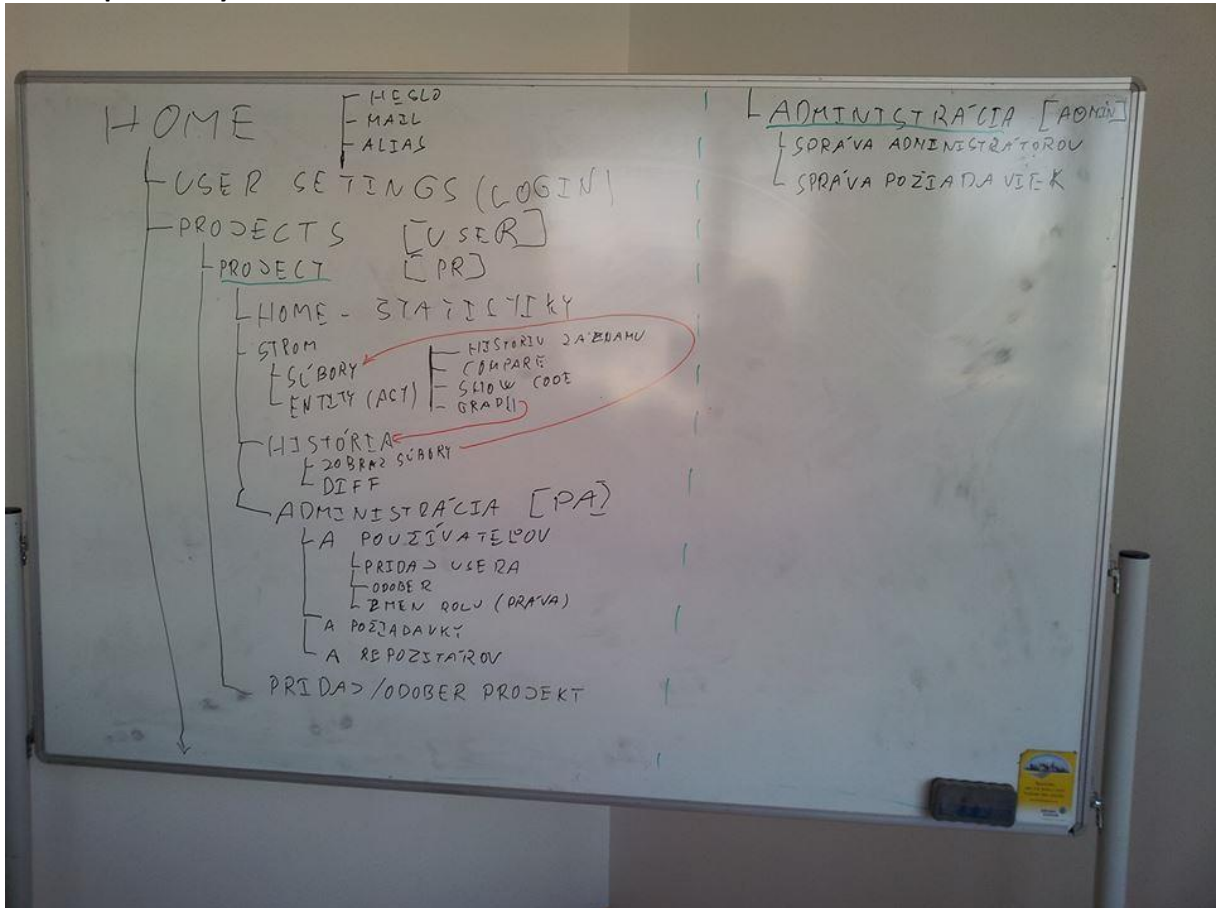 HOME
HESLO
MAIL
ALIAS
USER SETINGS (LOGIN)
PROJECTS [USER]
PROJECT [PR]
HOME - ŠTATISTIKY
STROM
SÚBORY
ENTITY (ACT)
HISTORIU ZÁZNAMU
COMPARE
SHOW CODE
GRAPH
HISTÓRIA
ZOBRAZ SÚBORY
DIFF
ADMINISTRÁCIA [PA]
A POUZÍVATEĽOV
PRIDAJ USERA
ODOBER
ZMEN ROLU (PRÁVA)
A POZIADAVKY
A REPOZITÁROV
PRIDAJ/ODOBER PROJEKT
ADMINISTRÁCIA [ADMIN]
SPRÁVA ADMINISTRÁTOROV
SPRÁVA POZIADAVIEK